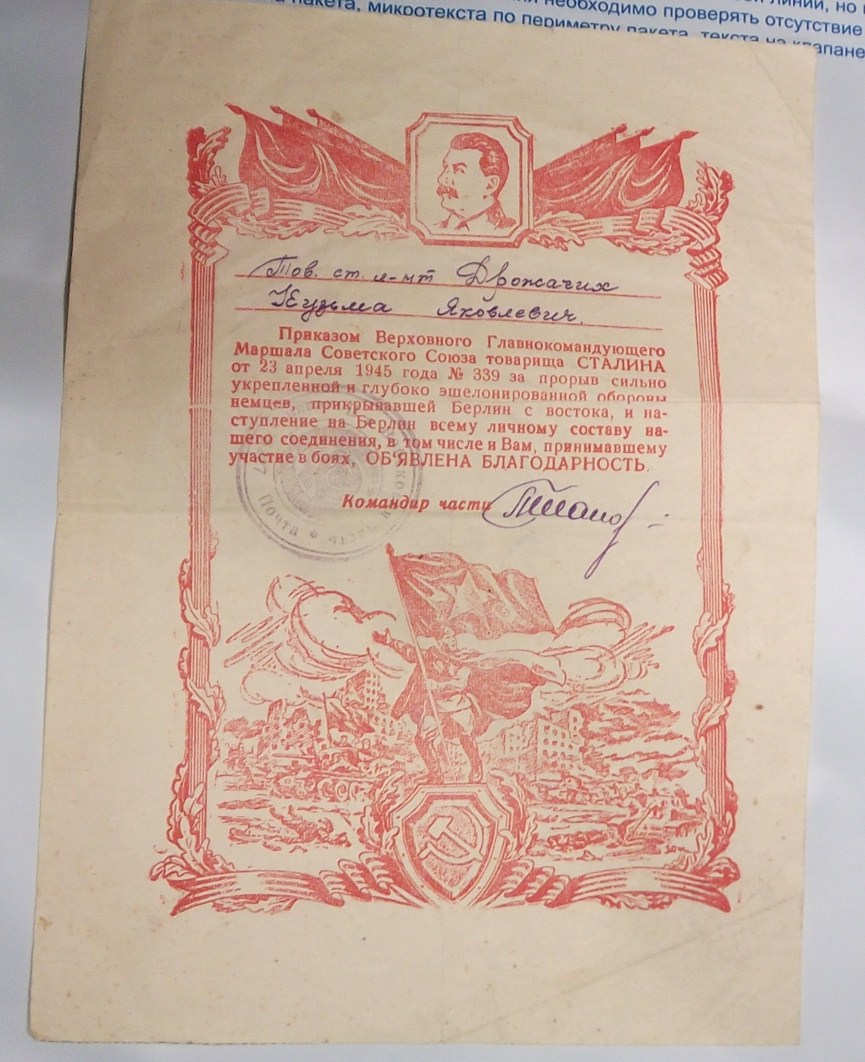 линии, но
необходимо проверять отсутствие
пакета, микротекста по периметру пакета, текста на клапане
Тов. ст. л-нт Дрожачих
Кузьма Яковлевич.
Приказом Верховного Главнокомандующего
Маршала Советского Союза товарища СТАЛИНА
от 23 апреля 1945 года № 339 за прорыв сильно
укрепленной и глубоко эшелонированной обороны
немцев, прикрывавшей Берлин с востока, и на-
ступление на Берлин всему личному составу на-
шего соединения, в том числе и Вам, принимавшему
участие в боях, ОБ'ЯВЛЕНА БЛАГОДАРНОСТЬ.
Командир части
Почта * часть